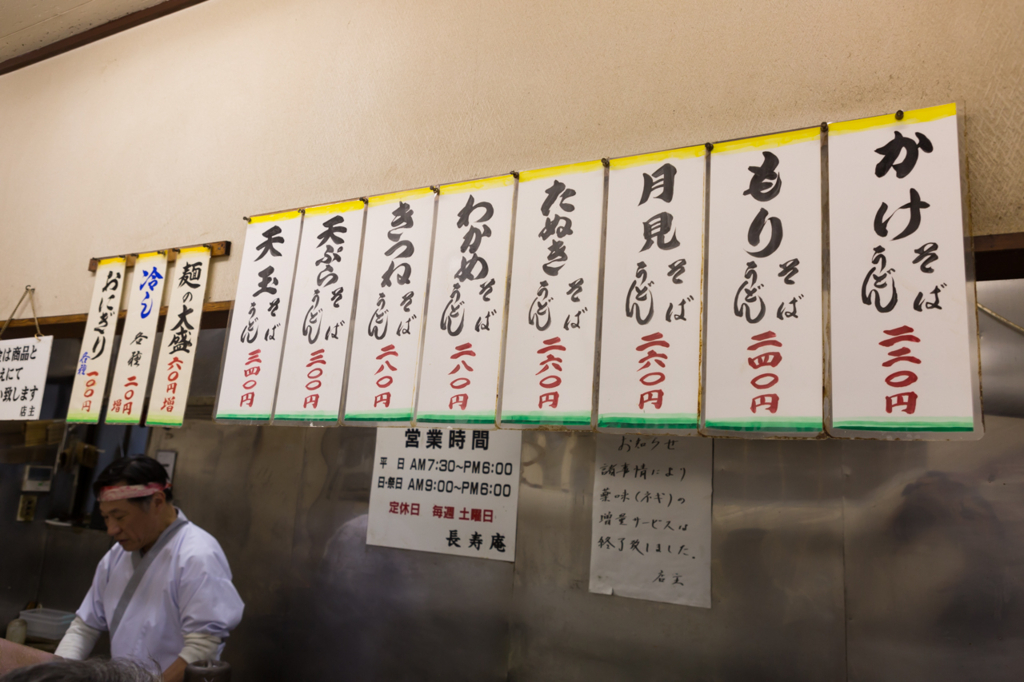 かけ
そば
うどん
二二〇円
もり
そば
うどん
二四〇円
月見
そば
うどん
二六〇円
たぬき
そば
うどん
二六〇円
わかめ
そば
うどん
二八〇円
きつね
そば
うどん
二八〇円
天ぷら
そば
うどん
三〇〇円
天玉
そば
うどん
三四〇円
麺の大盛
六〇円増
冷し
各種
二〇円増
おにぎり
各種
一〇〇円
は商品と
えにて
い致します
店主
営業時間
平 日 AM7:30~PM6:00
日・祭日 AM9:00~PM6:00
定休日 毎週 土曜日
長寿庵
お知らせ
諸事情により
薬味(ネギ)の
増量サービスは
終了致しました。
店主